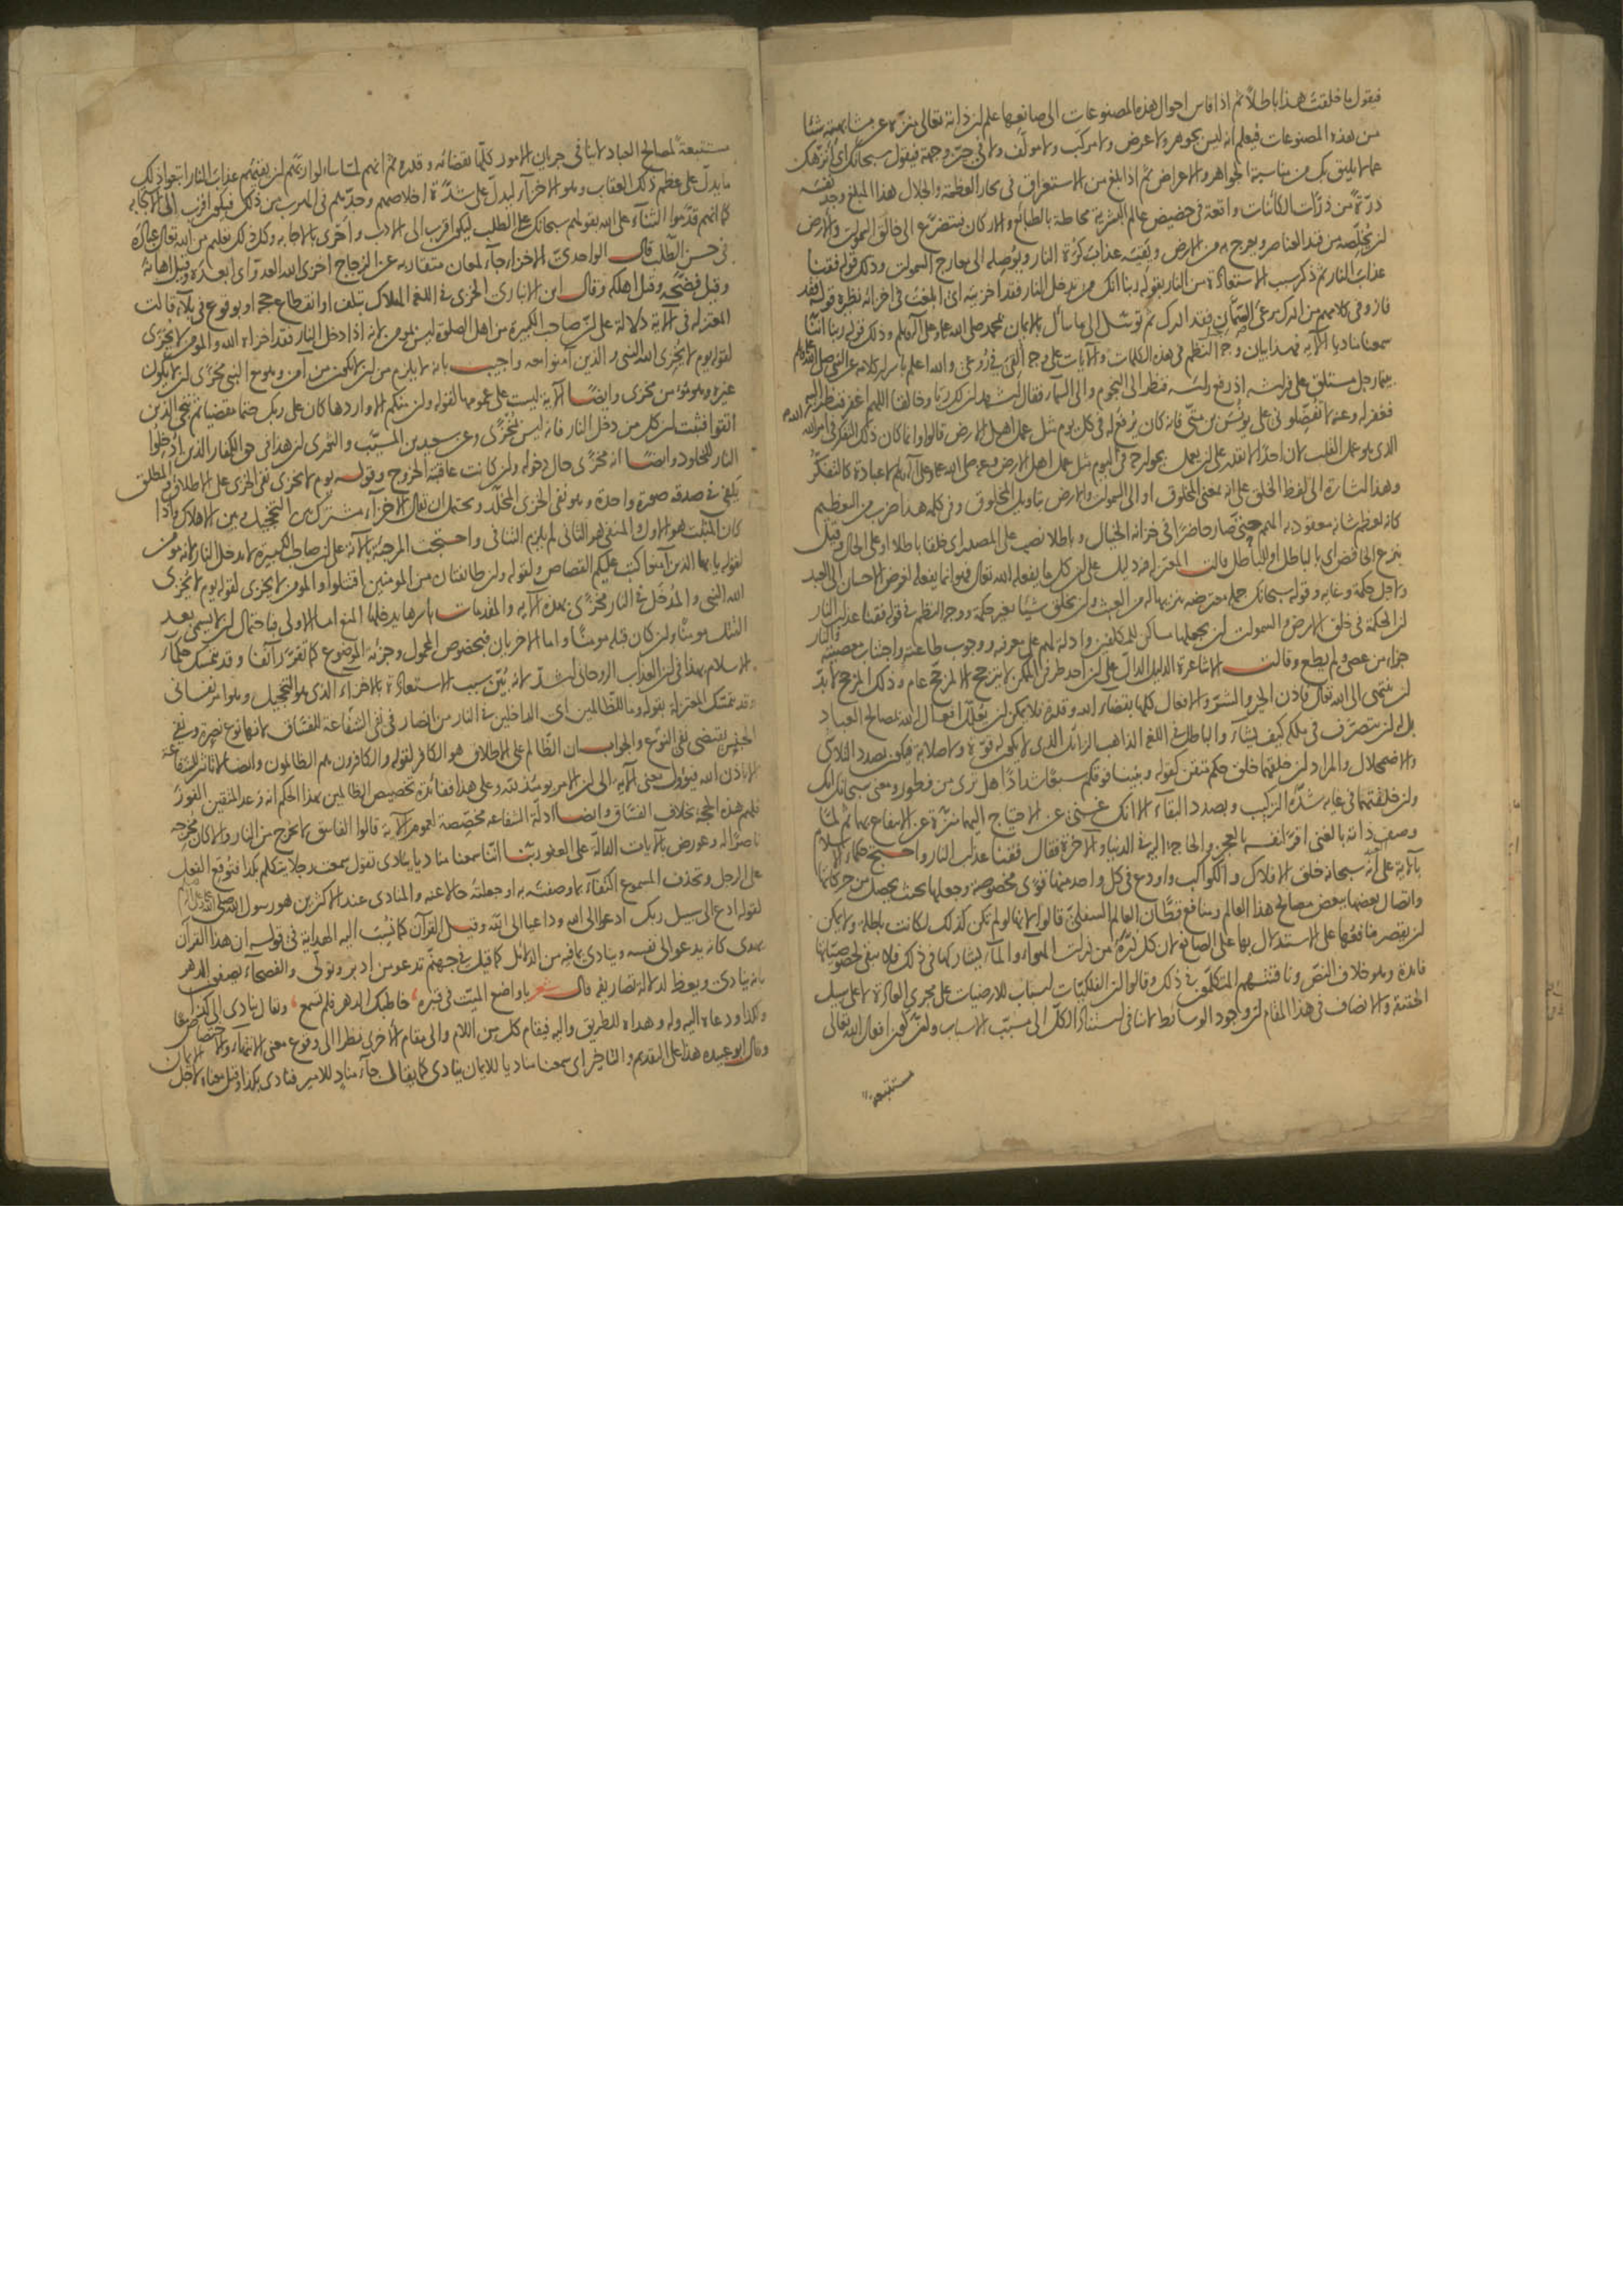 فيقول ما خلقت هذا باطلا ثم اذا قاس احوال هذه المصنوعات الى صانعها علم لن ذاته تعالى منزه عن مشابهة شئ
من هذه المصنوعات فيعلم انه ليس بجوهر ولا عرض ولا مركب ولا مؤلف ولا في حيز وجهة فيقول سبحانك اى انزهك
عما لا يليق بك من مناسبة الجواهر والاعراض ثم اذا بلغ من الاستغراق في بحار العظمة والجلال هذا المبلغ وجد نفسه
ذرة من ذرات الكائنات واقعة في حضيض عالم البشرية محاطة بالطبائع والاركان فيتضرع الى خالق السموت والارض
لن يخلصه من قيد العناصر ويعرج به من الارض ويقيه عذاب كرة النار ويوصله الى معارج السموت وذلك قوله فقنا
عذاب النار ثم ذكر سبب الاستعاذة من النار بقوله ربنا انك من تدخل النار فقد اخزيته اى ابلغت في اخزائه نظيره قوله فقد
فاز وفي كلامهم من ادرك مرعى الصمان فقد ادرك ثم توسل الى ما سأل بالايمان بمحمد صلى الله عليه وعلى آله وسلم وذلك قوله ربنا اننا
سمعنا مناديا الآية فهذا بيان وجه النظم في هذه الكلمات والآيات على وجه القى في روعى والله اعلم باسرار كلامه عن النبي صلى الله عليه وسلم
بينما رجل مستلق على فراشه إذ رفع رأسه فنظر الى النجوم والى السماء فقال اشهد لن لك ربا وخالقا اللهم اغفر لي فنظر الله اليه
فغفر له وعنه لا تفضلونى على يونس بن متى فانه كان يرفع له في كل يوم مثل عمل اهل الارض قالوا وانما كان ذلك التفكر في امر الله
الذى هو عمل القلب لان احدا لا يقدر على لن يعمل بجوارحه في اليوم مثل عمل اهل الارض وعنه صلى الله عليه وعلى آله وسلم لا عبادة كالتفكر
وهذا اشارة الى لفظ الخلق على انه بمعنى المخلوق او الى السموت والارض بتاويل المخلوق وفي كلمة هذا ضرب من التعظيم
كانه لعظم شانه معقود به الهمم حتى صار حاضرا في خزانة الخيال وباطلا نصب على المصدر اى خلقا باطلا او على الحال وقيل
بنزع الخافض اى بالباطل او للباطل قالت المعتزلة فيه دليل على لن كل ما يفعله الله تعالى فهو انما يفعله لغرض الاحسان الى العبد
ولاجل حكمة وغاية وقوله سبحانك جملة معترضة تنزيها له من العبث ولن يخلق شيئا بغير حكمة ووجه النظم في قوله فقنا عذاب النار
لن الحكمة في خلق الارض والسموت لن يجعلها مساكن للمكلفين وادلة لهم على معرفته ووجوب طاعته واجتناب معصيته والنار
جزاء من عصى ولم يطع وقالت الاشاعرة الدليل الدال على لن احد طرفى الممكن لا يترجح الا لمرجح عام وذلك المرجح لا بد
لن ينتهى الى الله تعالى فاذن الخير والشر والافعال كلها بقضاء الله وقدره فلا يمكن لن يعلل افعال الله بمصالح العباد
بل له لن يتصرف في ملكه كيف يشاء والباطل في اللغة الذاهب الزائل الذى لا يكون له قوة ولا صلابة فيكون بصدد التلاشى
والاضمحلال والمراد لن خلقهما خلق محكم متقن كقوله وبنينا فوقكم سبعا شدادا هل ترى من فطور ومعنى سبحانك انك
ولن خلقتهما في غاية شدة التركيب وبصدد البقاء الا انك غنى عن الاحتياج اليهما منزه عن الانتفاع بهما ثم لما
وصف ذاته بالغنى اقر لنفسه بالعجز والحاجة اليه في الدنيا والآخرة فقال فقنا عذاب النار واحتج حكماء الاسلام
بالآية على أنه سبحانه خلق الافلاك والكواكب واودع في كل واحد منهما قوى مخصوصة وجعلها بحيث يحصل من حركاتها
واتصال بعضها ببعض مصالح هذا العالم ومنافع قطان العالم السفلى قالوا لانها لو لم تكن كذلك لكانت باطلة ولا يمكن
لن يقصر منافعها على الاستدلال بها على الصانع لان كل ذرة من ذرات الهواء والماء يشاركها في ذلك فلا تبقى لخصوصياتها
فائدة وهو خلاف النص وناقشهم المتكلمون في ذلك وقالوا لن الفلكيات اسباب للارضيات على مجرى العادة لا على سبيل
الحقيقة والانصاف في هذا المقام لن وجود الوسائط لا ينافى استناد الكل الى مسبب الاسباب ولن كون افعال الله تعالى
مستتبعة
مستتبعة لمصالح العباد لا ينافى جريان الامور كلها بقضائه وقدره ثم انهم لما سالوا ربهم لن يقيهم عذاب النار اتبعوا ذلك
ما يدل على عظم ذلك العقاب وهو الاخزاء ليدل على شدة اخلاصهم وجدهم في الهرب من ذلك فيكون اقرب الى الاجابة
كما انهم قدموا الثناء على الله بقولهم سبحانك على الطلب ليكون اقرب الى الادب واحرى بالاجابة وكل ذلك تعليم من الله تعالى عباده
في حسن الطلب قال الواحدى الاخزاء جاء لمعان متقاربة عن الزجاج اخزى الله العدو اى ابعده وقيل اهانه
وقيل فضحه وقيل اهلكه وقال ابن الانبارى الخزى في اللغة الهلاك بتلف او انقطاع حجة او بوقوع في بلاء قالت
المعتزلة في الآية دلالة على لن صاحب الكبيرة من اهل الصلوة ليس بمؤمن لانه اذا دخل النار فقد اخزاه الله والمؤمن لا يخزى
لقوله يوم لا يخزى الله النبى والذين آمنوا معه واجيب بانه لا يلزم من لن لا يكون من آمن وهو مع النبى مخزى لن لا يكون
غيره وهو مؤمن مخزى وايضا الآية ليست على عمومها لقوله ولن منكم الا واردها كان على ربك حتما مقضيا ثم ننجى الذين
اتقوا فثبت لن كل من دخل النار فانه ليس بمخزى وعن سعيد بن المسيب والثورى لن هذا في حق الكفار الذين ادخلوا
النار للخلود وايضا انه مخزى حال دخوله ولن كانت عاقبته الخروج وقوله يوم لا يخزى نفى الخزى على الاطلاق والمطلق
يكفى في صدقه صورة واحدة وهو نفى الخزى المخلد ويحتمل ان يقال الاخزاء مشترك بين التخجيل وبين الاهلاك واذا
كان المثبت هو الاول والمنفى هو الثانى لم يلزم التنافى واحتجت المرجئة بالآية على لن صاحب الكبيرة لا يدخل النار لانه مؤمن
لقوله يا ايها الذين آمنوا كتب عليكم القصاص ولقوله ولن طائفتان من المؤمنين اقتتلوا والمؤمن لا يخزى لقوله يوم لا يخزى
الله النبى والمدخل في النار مخزى بهذه الآية والمقدمات باسرها يدخلها المنع اما الاولى فباحتمال لن لا يسمى بعد
القتل مؤمنا ولن كان قبله مؤمنا واما الاخريان فبخصوص المحمول وجزئية الموضوع كما تقرر آنفا وقد تمسك حكماء
الاسلام بهذا في لن العذاب الروحانى اشد لانه بين سبب الاستعاذة بالاخزاء الذى هو التخجيل وهو امر نفسانى
وقد تمسك المعتزلة بقوله وما للظالمين اى الداخلين في النار من انصار في نفى الشفاعة للفساق لانها نوع نصرة ونفى
الجنس يقتضى نفى النوع والجواب ان الظالم على الاطلاق هو الكافر لقوله والكافرون هم الظالمون وايضا لا تاثير للشفاعة
الا باذن الله فيؤول معنى الآية الى لن الامر يومئذ لله وعلى هذا ففائدة تخصيص الظالمين بهذا الحكم انه وعد المتقين الفوز
فلهم هذه الحجة بخلاف الفساق وايضا ادلة الشفاعة مخصصة لعموم الآية قالوا الفاسق لا يخرج من النار والا كان مخرجه
ناصرا له وعورض بالآيات الدالة على العفو ربنا اننا سمعنا مناديا ينادى تقول سمعت رجلا يتكلم بكذا فتوقع الفعل
على الرجل وتحذف المسموع اكتفاء بما وصفته به او جعلته حالا عنه والمنادى عند الاكثرين هو رسول الله صلى الله عليه
لقوله ادع الى سبيل ربك ادعو الى الله وداعيا الى الله وقيل القرآن كما نسبت اليه الهداية في قوله ان هذا القرآن
يهدى كانه يدعو الى نفسه وينادى بما فيه من الدلائل كما قيل في جهنم تدعو من ادبر وتولى والفصحاء يصفون الدهر
بانه ينادى ويعظ لدلالة تصاريفه قال شعر يا واضع الميت في قبره، خاطبك الدهر فلم تسمع، ويقال ينادى الى كذا
ولكذا ودعاه اليه وله وهداه للطريق واليه فيقام كل من اللام والى مقام الاخرى نظرا الى وقوع معنى الانتهاء والاختصاص معا
وقال ابو عبيدة هذا على التقديم والتاخير اى سمعنا مناديا للايمان ينادى كما يقال جاء مناد للامير فنادى بكذا وقيل معناه لاجل الايمان